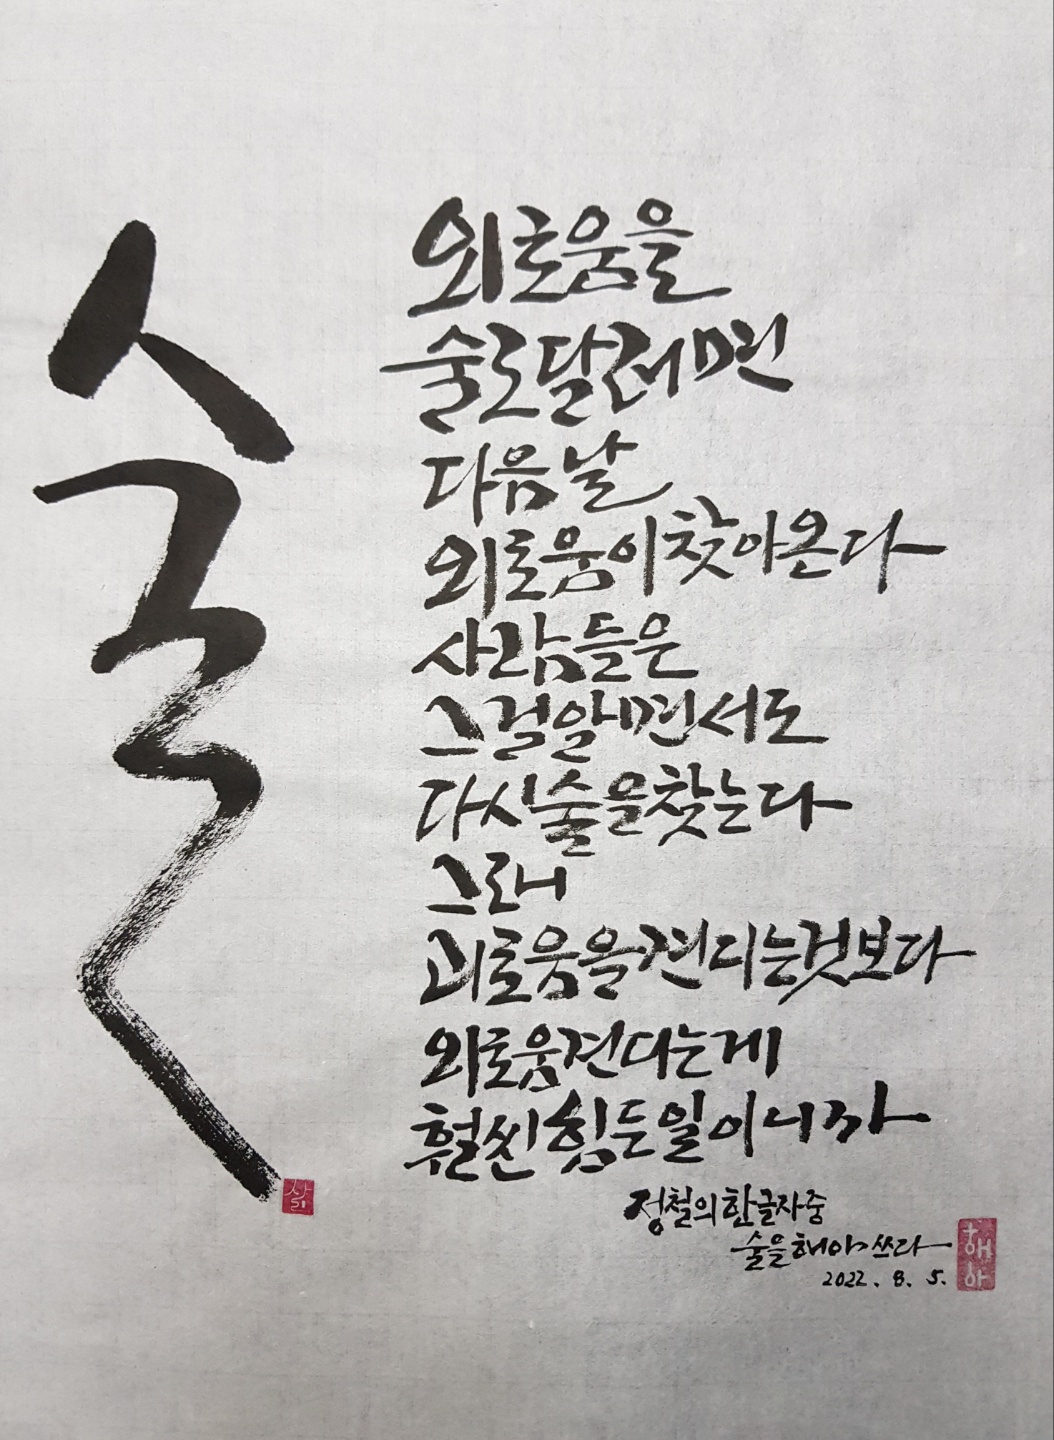 술
외로움을
술로달래면
다음날
외로움이찾아온다
사람들은
그걸알면서도
다시술을찾는다
그래
괴로움을견디는것보다
외로움견디는게
훨씬힘든일이니까
정철의한글자중
술을해아쓰다
2022. 8. 5.
삶
해아